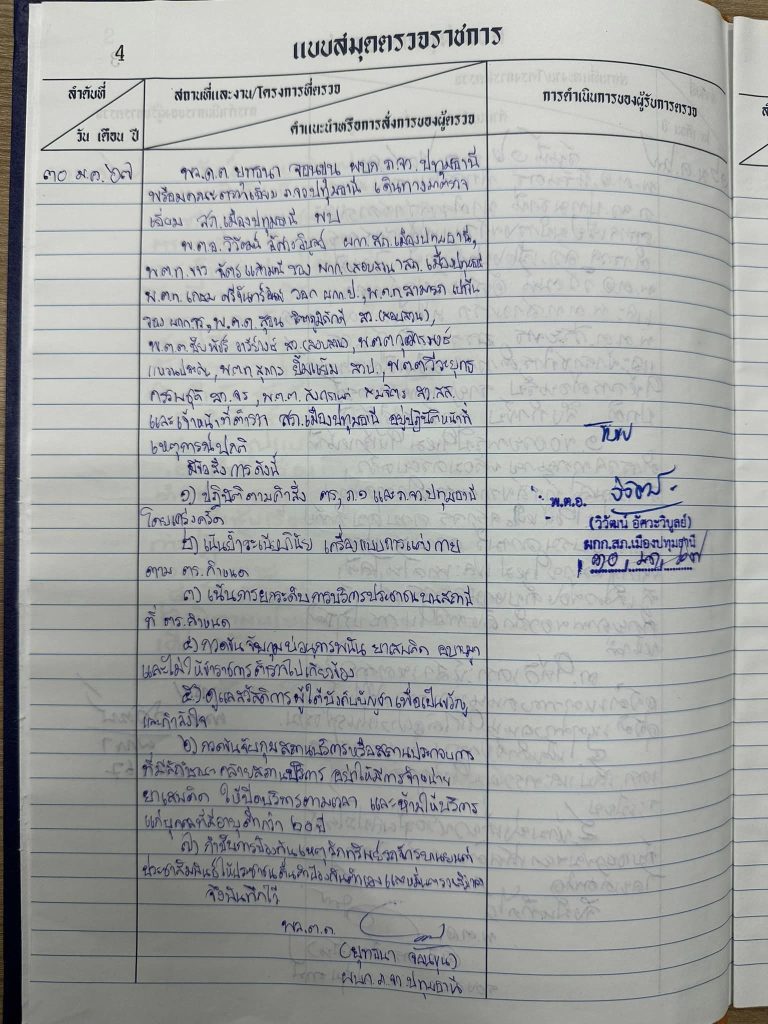 4
แบบสมุดตรวจราชการ
ลำดับที่
วัน เดือน ปี
สถานที่และงาน/โครงการที่ตรวจ
คำแนะนำหรือการสั่งการของผู้ตรวจ
การดำเนินการของผู้รับการตรวจ
๓๐ ม.ค. ๖๗
พล.ต.ต. ยุทธนา จอนขุน ผบก.ภ.จว.ปทุมธานี
พร้อมคณะตรวจเยี่ยม ภ.จว.ปทุมธานี เดินทางมาตรวจ
เยี่ยม สภ.เมืองปทุมธานี พบ
พ.ต.อ. วิวัฒน์ อัศวะวิบูลย์ ผกก.สภ.เมืองปทุมธานี,
รอง ผกก.(สอบสวน) สภ.เมืองปทุมธานี
พ.ต.ท. เกษม ศรีจันทร์ รอง ผกก.ป., พ.ต.ท. สามารถ
รอง ผกก.สส, พ.ต.ต. สว.(สอบสวน),
พ.ต.ต. สว.(สอบสวน), พ.ต.ต.
พ.ต.ต. สุภาวงษ์ ยิ้มแย้ม สวป., พ.ต.ต. วีระยุทธ
สว.จร, พ.ต.ต. สมจิตร สว.สส
และเจ้าหน้าที่ตำรวจ สภ.เมืองปทุมธานี อยู่ปฏิบัติหน้าที่
เหตุการณ์ปกติ
มีข้อสั่งการดังนี้
๑) ปฏิบัติตามคำสั่ง ตร, ภ.๑ และ ภ.จว.ปทุมธานี
โดยเคร่งครัด
๒) เน้นย้ำระเบียบวินัย เครื่องแบบการแต่งกาย
ตาม ตร. กำหนด
๓) เน้นการยกระดับการบริการประชาชนบนสถานี
ที่ ตร. กำหนด
๔) กวดขันจับกุมบ่อนการพนัน ยาเสพติด อบายมุข
และไม่ให้ข้าราชการตำรวจไปเกี่ยวข้อง
๕) ดูแลสวัสดิการผู้ใต้บังคับบัญชาเพื่อเป็นขวัญ
และกำลังใจ
๖) กวดขันจับกุมสถานบริการหรือสถานประกอบการ
ที่มีลักษณะคล้ายสถานบริการ อย่าให้มีการจำหน่าย
ยาเสพติด ให้ปิดบริการตามเวลา และห้ามให้บริการ
แก่บุคคลที่มีอายุต่ำกว่า ๒๐ ปี
๗) กำชับการป้องกันเหตุลักทรัพย์รถจักรยานยนต์
ประชาสัมพันธ์ให้ประชาชน
จึงบันทึกไว้
พล.ต.ต.
(ยุทธนา จอนขุน)
ผบก.ภ.จว.ปทุมธานี
ทราบ
พ.ต.อ.
(วิวัฒน์ อัศวะวิบูลย์)
ผกก.สภ.เมืองปทุมธานี
๓๐, ม.ค, ๖๗